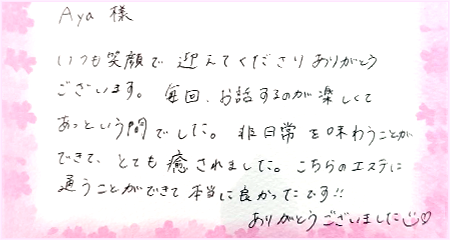 Aya 様
いつも笑顔で 迎えてくださり ありがとう
ございます。 毎回、お話するのが楽しくて
あっという間でした。 非日常を味わうことが
できて、とても 癒されました。こちらのエステに
通うことができて 本当に良かったです!!
ありがとうございました☺♡